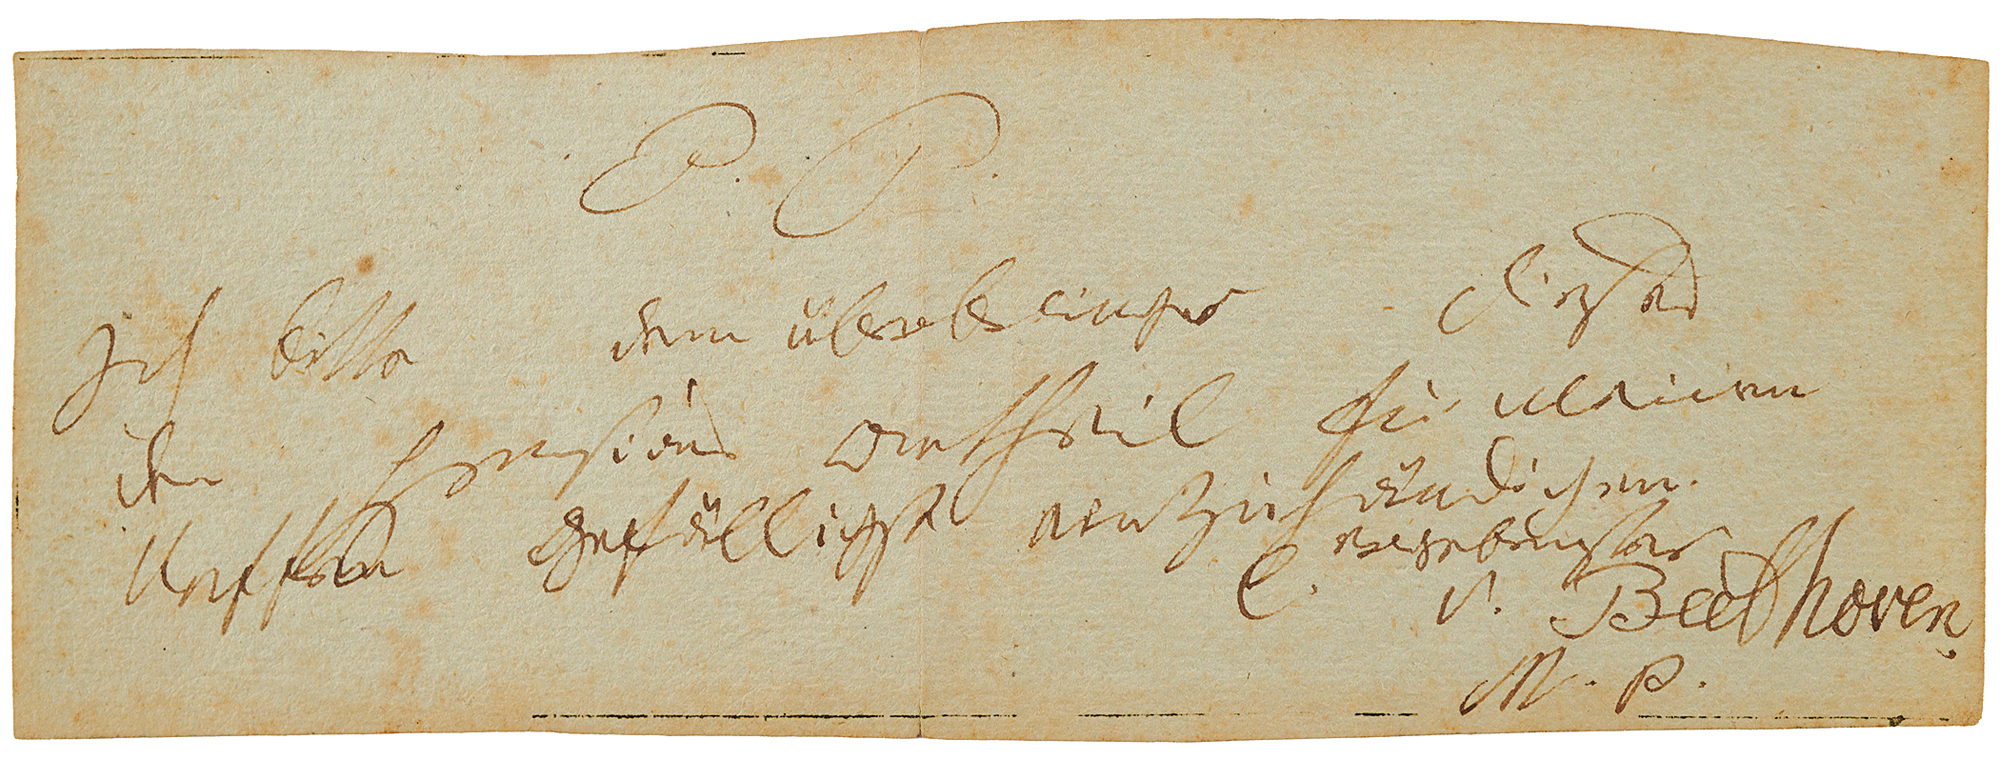 P. P.
Ich bitte dem überbringer dieses
den Pensions antheil für meinen
Neffen gefälligst einzuhändigen.
ergebenster
L. v. Beethoven
M. P.